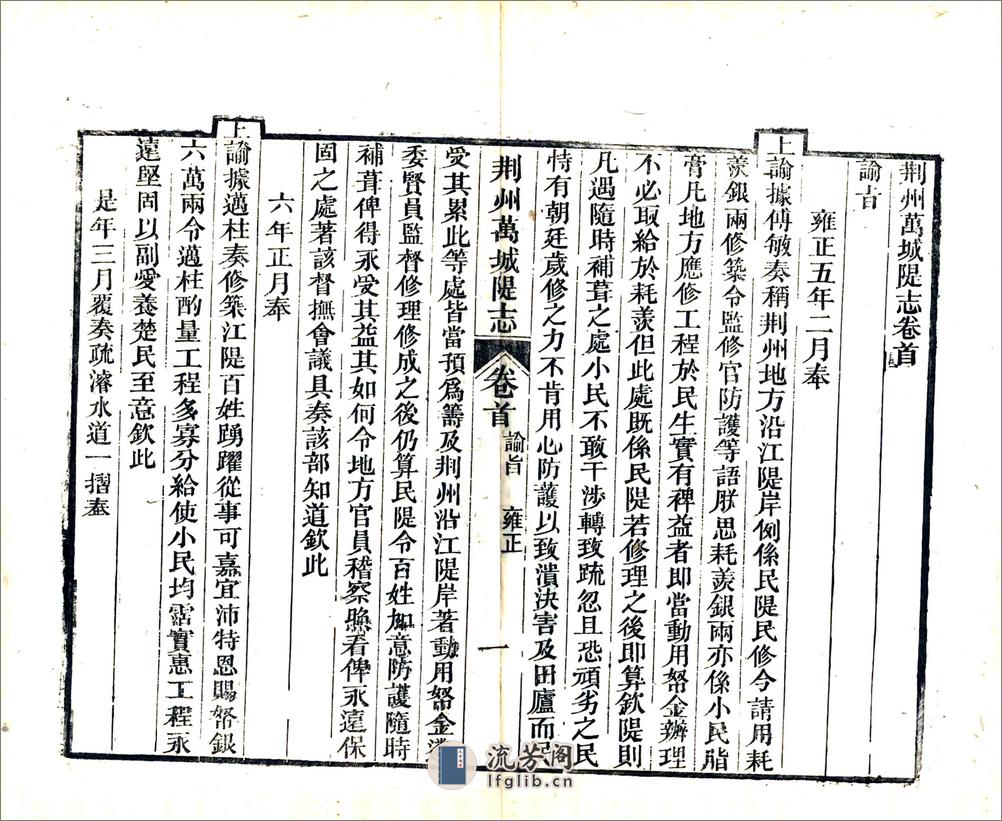 荆州萬城隄志卷首
諭旨
雍正五年二月奉
上諭據傅敏奏稱荆州地方沿江隄岸例係民隄民修今請用耗
羨銀兩修築令監修官防護等語朕思耗羨銀兩亦係小民脂
膏凡地方應修工程於民生實有裨益者即當動用帑金辦理
不必取給於耗羨但此處既係民隄若修理之後即算欽隄則
凡遇隨時補葺之處小民不敢干涉轉致疏忽且恐頑劣之民
恃有朝廷歲修之力不肯用心防護以致潰決害及田廬而
荆州萬城隄志 卷首 諭旨 雍正 一
受其累此等處皆當預爲籌及荆州沿江隄岸著動用帑金
委賢員監督修理修成之後仍算民隄令百姓加意防護隨時
補葺俾得永受其益其如何令地方官員稽察照看俾永遠保
固之處著該督撫會議具奏該部知道欽此
六年正月奉
上諭據邁柱奏修築江隄百姓踴躍從事可嘉宜沛特恩賜帑銀
六萬兩令邁柱酌量工程多寡分給使小民均霑實惠工程永
遠堅固以副愛養楚民至意欽此
是年三月覆奏疏濬水道一摺奉
流芳阁
lfglib.cn